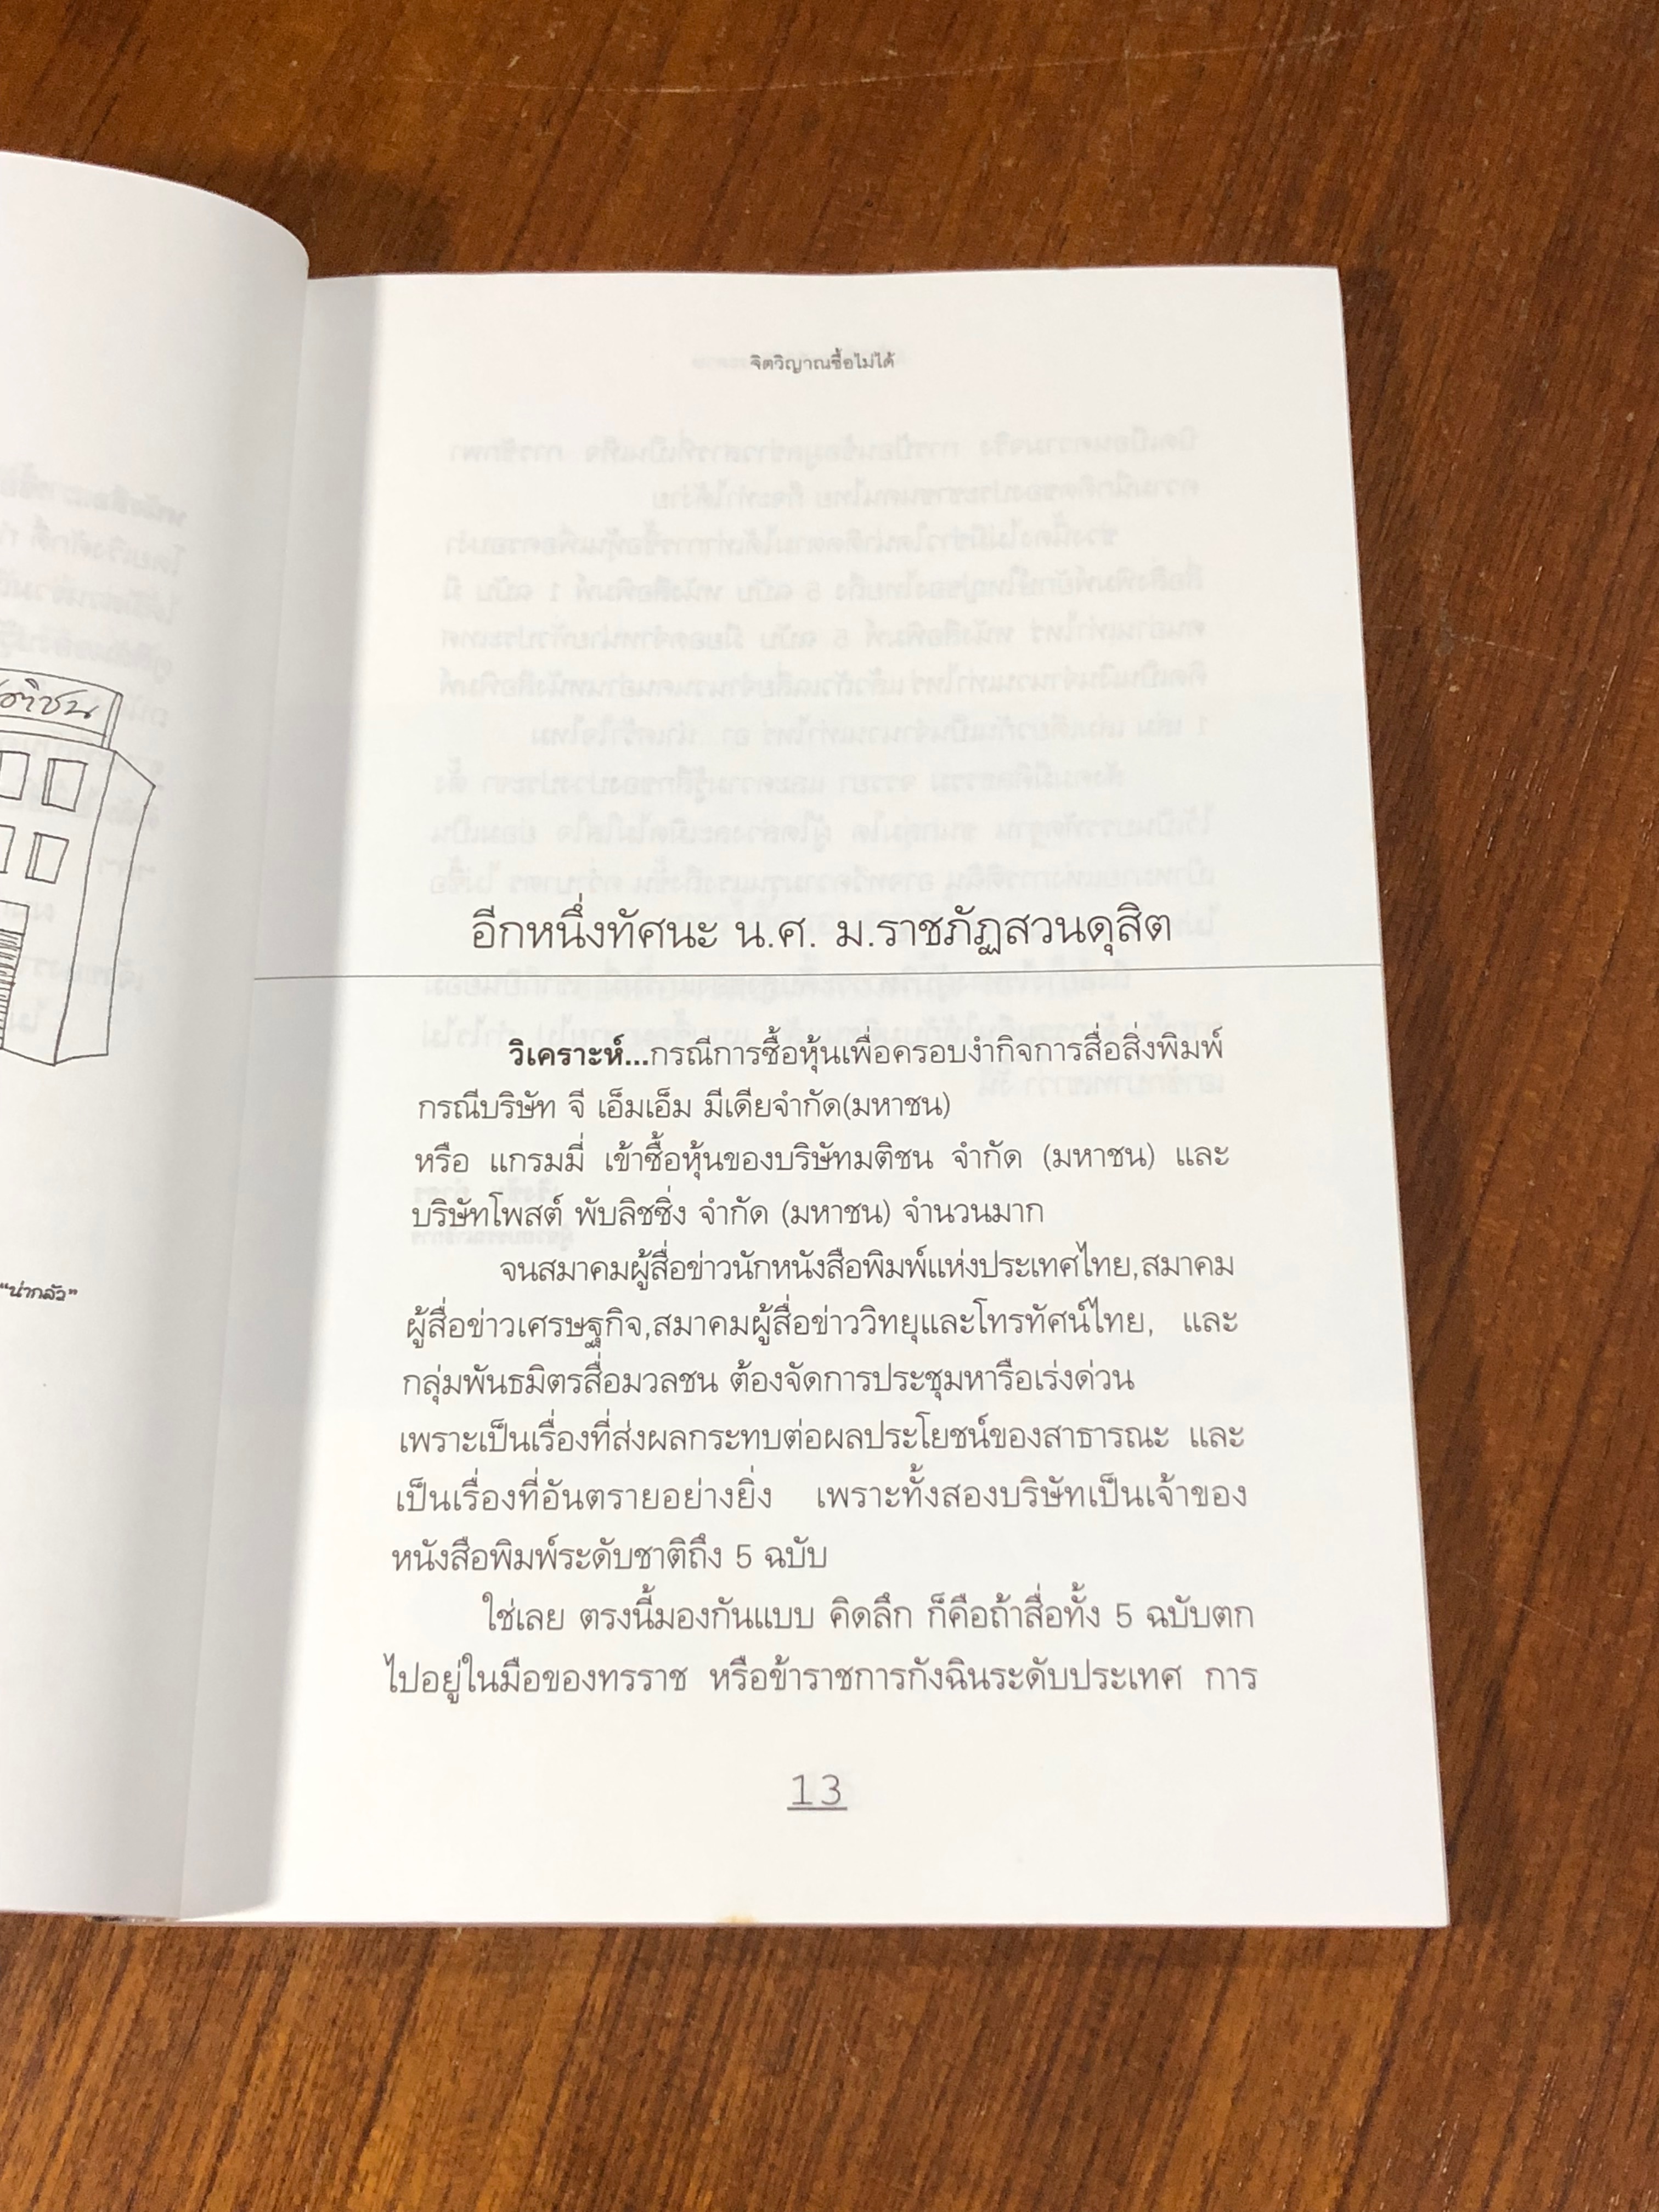 จิตวิญาณซื้อไม่ได้
อีกหนึ่งทัศนะ น.ศ. ม.ราชภัฏสวนดุสิต
วิเคราะห์...กรณีการซื้อหุ้นเพื่อครอบงำกิจการสื่อสิ่งพิมพ์
กรณีบริษัท จี เอ็มเอ็ม มีเดียจำกัด(มหาชน)
หรือ แกรมมี่ เข้าซื้อหุ้นของบริษัทมติชน จำกัด (มหาชน) และ
บริษัทโพสต์ พับลิชชิ่ง จำกัด (มหาชน) จำนวนมาก
จนสมาคมผู้สื่อข่าวนักหนังสือพิมพ์แห่งประเทศไทย,สมาคม
ผู้สื่อข่าวเศรษฐกิจ,สมาคมผู้สื่อข่าววิทยุและโทรทัศน์ไทย, และ
กลุ่มพันธมิตรสื่อมวลชน ต้องจัดการประชุมหารือเร่งด่วน
เพราะเป็นเรื่องที่ส่งผลกระทบต่อผลประโยชน์ของสาธารณะ และ
เป็นเรื่องที่อันตรายอย่างยิ่ง เพราะทั้งสองบริษัทเป็นเจ้าของ
หนังสือพิมพ์ระดับชาติถึง 5 ฉบับ
ใช่เลย ตรงนี้มองกันแบบ คิดลึก ก็คือถ้าสื่อทั้ง 5 ฉบับตก
ไปอยู่ในมือของทรราช หรือข้าราชการกังฉินระดับประเทศ การ
13
"น่ากลัว"